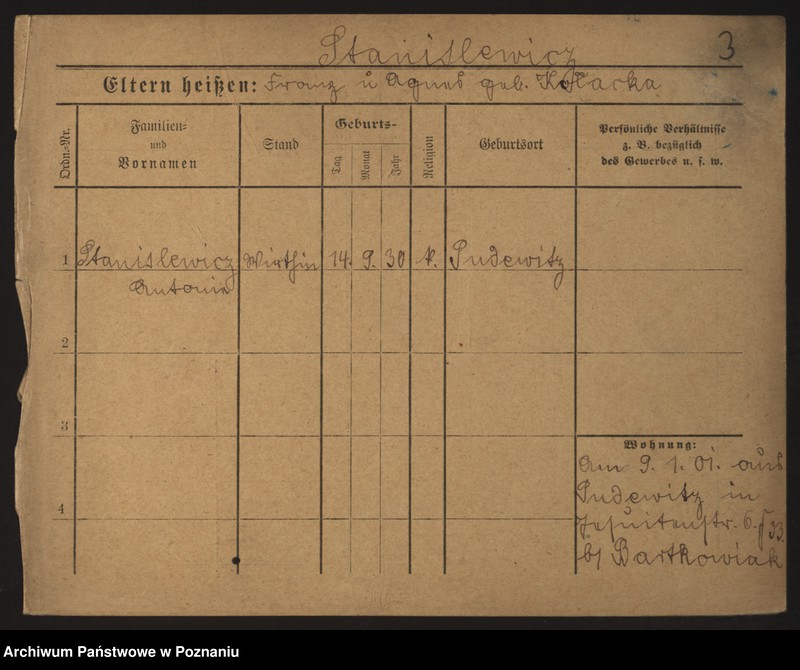 Stanislewicz 3
Eltern heißen: Franz u Agnes geb. Kołacka
Ordn.-Nr.
Familien-
und
Vornamen
Stand
Geburts-
Tag
Monat
Jahr
Religion
Geburtsort
Persönliche Verhältnisse
z. B. bezüglich
des Gewerbes u. s. w.
1 Stanislewicz Wirthin 14. 9. 30 k. Pudewitz
Antonie
2
3
4
Wohnung:
Am 9. 1. 01. aus
Pudewitz in
Jesuitenstr. 6.
b/ Bartkowiak
Archiwum Państwowe w Poznaniu